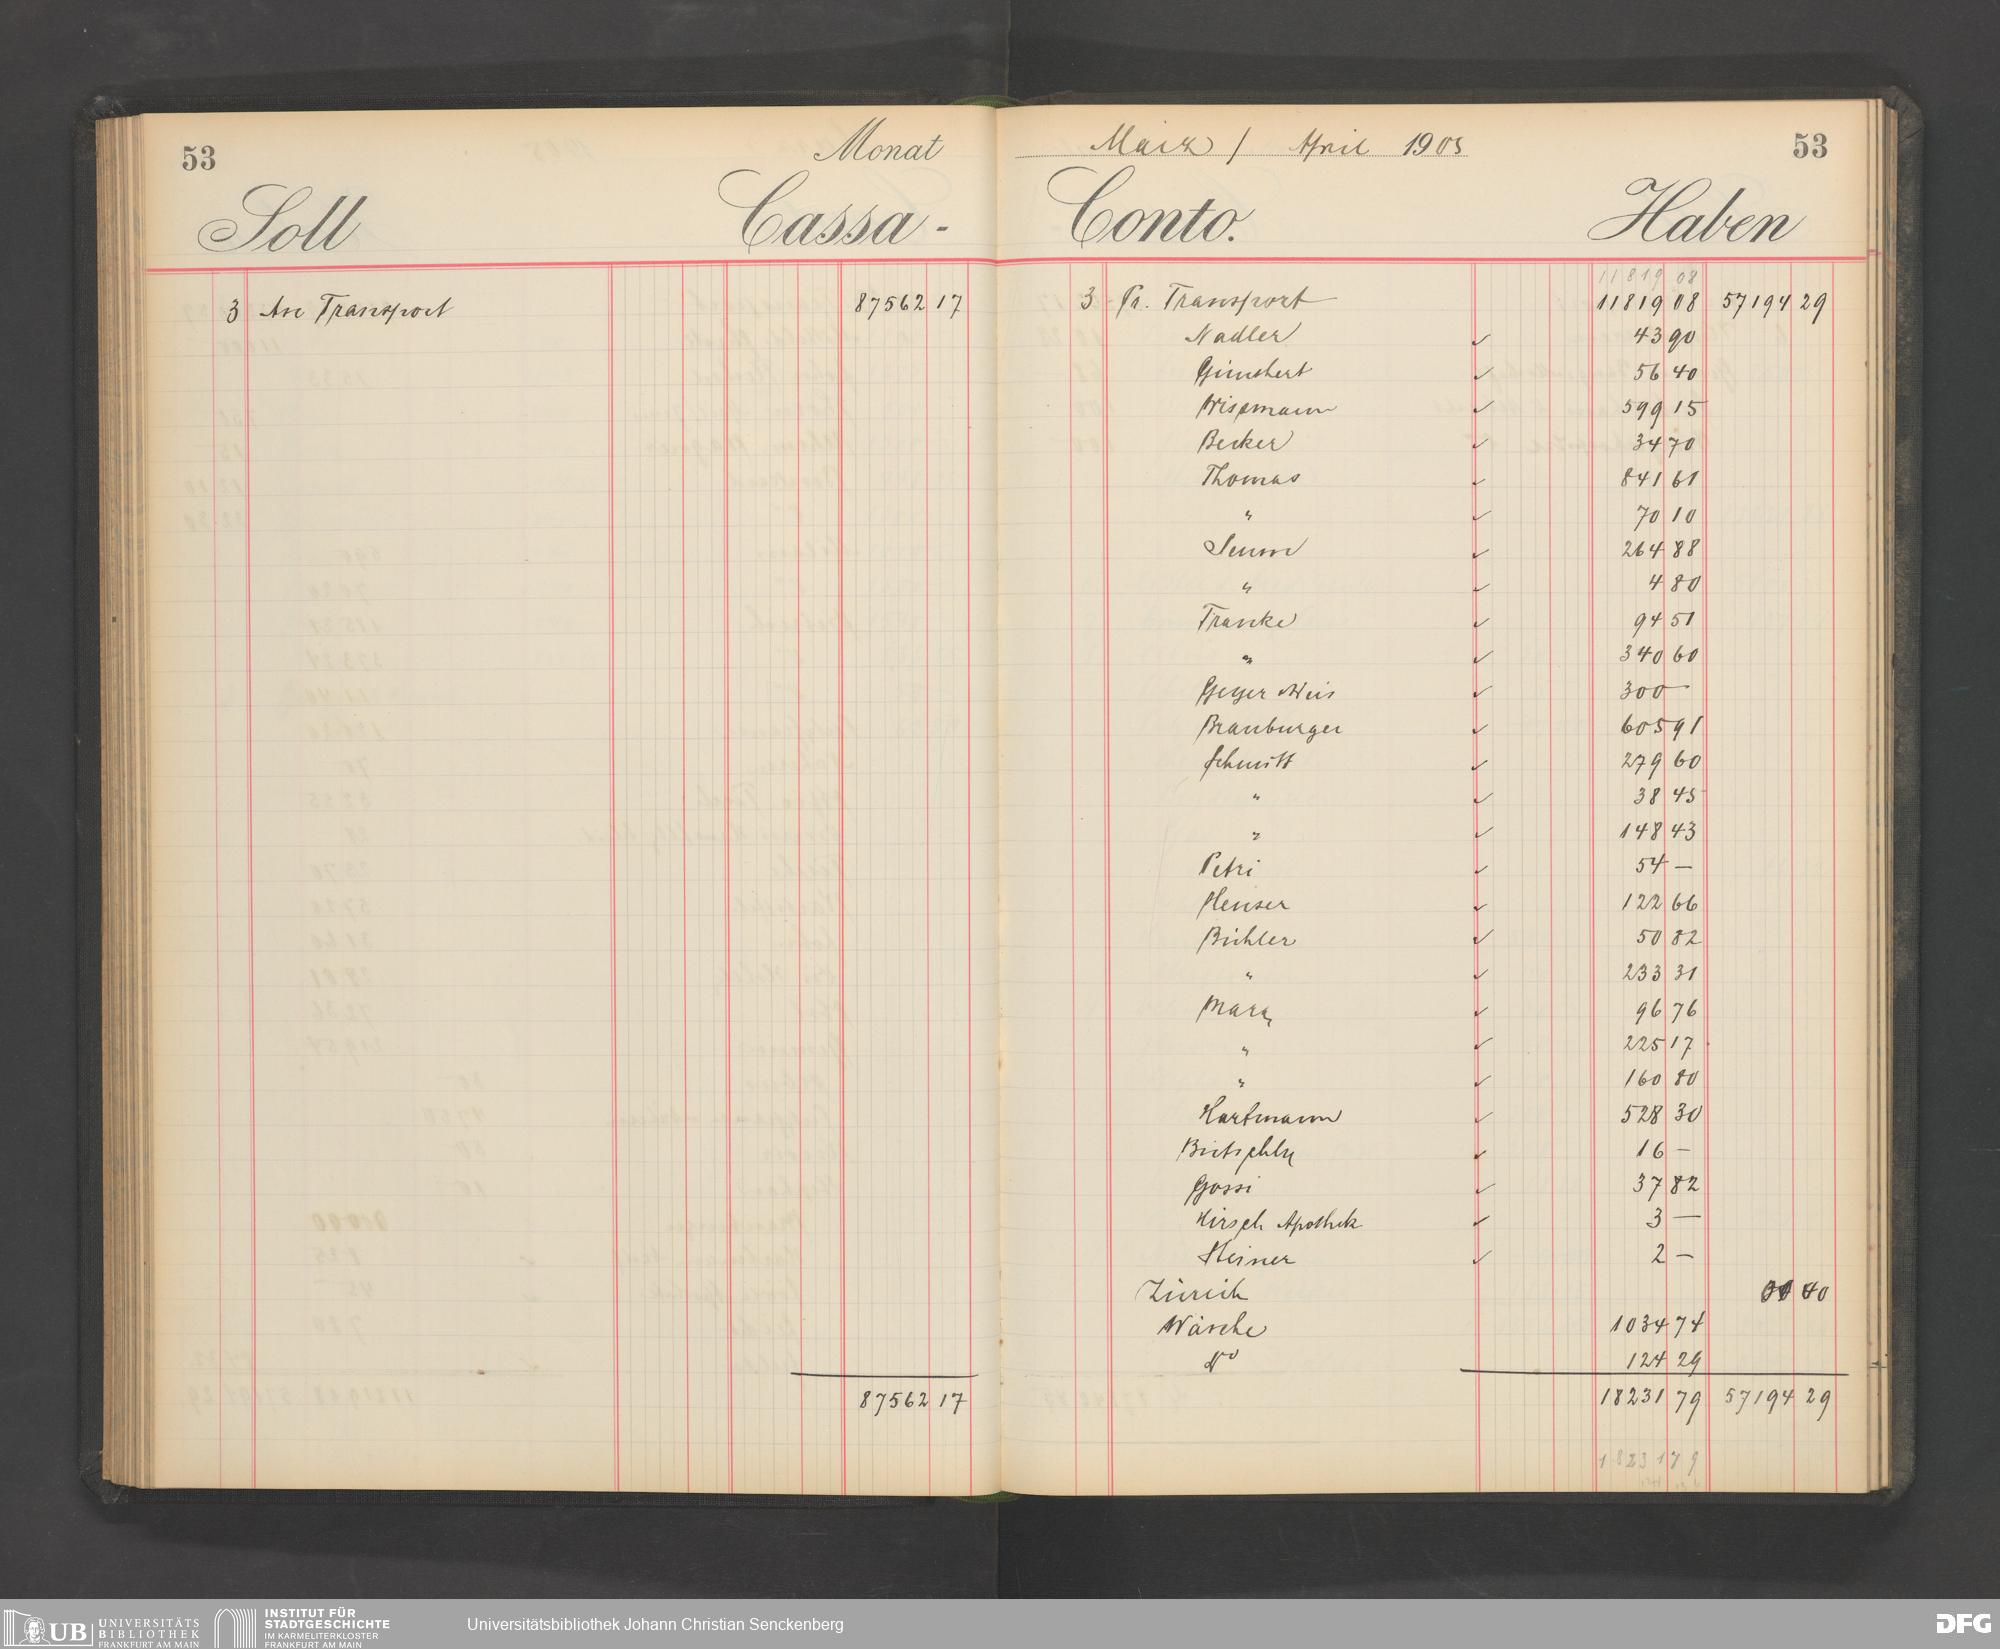 53
Monat
Soll
Cassa -
3 An Transport 87562 17
87562 17
März / April 1903
53
Conto.
Haben
11819 08
3 Pr. Transport 11819 08 57194 29
Nadler ✓ 43 90
✓ 56 40
Wissmann ✓ 599 15
Becker ✓ 34 70
Thomas ✓ 841 61
" ✓ 70 10
✓ 264 88
" ✓ 4 80
Francke ✓ 94 51
" ✓ 340 60
Geyer ✓ 300 —
Branburger ✓ 605 91
Schmitt ✓ 279 60
" ✓ 38 45
" ✓ 148 43
Petri ✓ 54 —
Henser ✓ 122 66
Bichler ✓ 50 82
" ✓ 233 31
Marx ✓ 96 76
" ✓ 225 17
" ✓ 160 80
Hartmann ✓ 528 30
Bütschly ✓ 16 —
Gossi ✓ 37 82
Hirsch Apothek ✓ 3 —
Heiner ✓ 2 —
Zürich 40
Wäsche 1034 74
do 124 29
18231 79 57194 29
18231 79
UB UNIVERSITÄTS
BIBLIOTHEK
FRANKFURT AM MAIN
INSTITUT FÜR
STADTGESCHICHTE
IM KARMELITERKLOSTER
FRANKFURT AM MAIN
Universitätsbibliothek Johann Christian Senckenberg
DFG